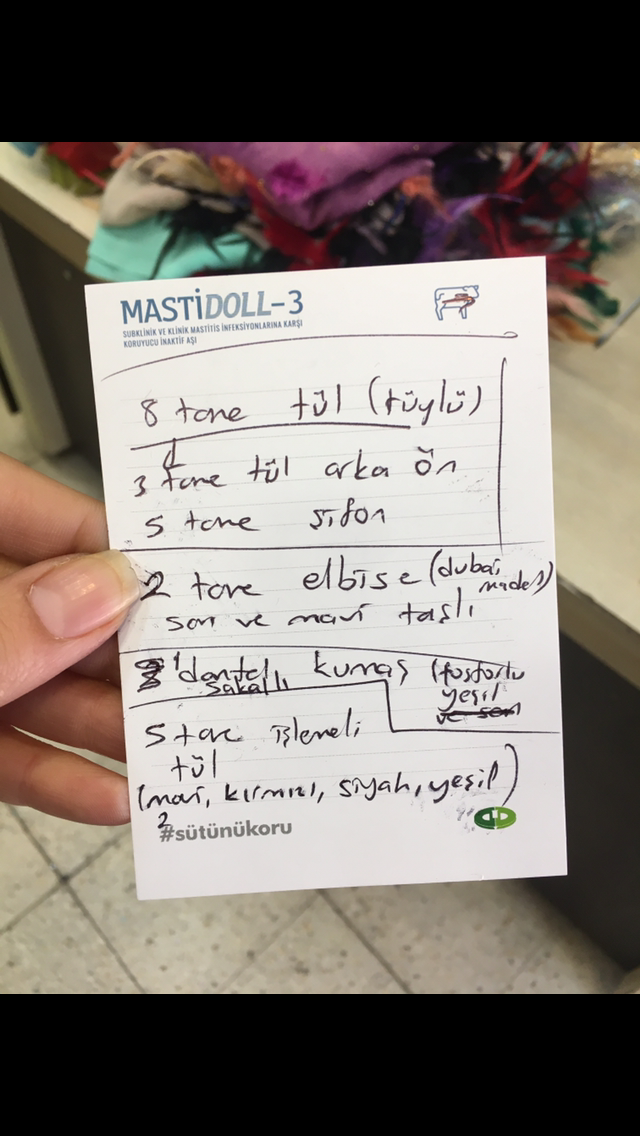 MASTİDOLL-3
SUBKLİNİK VE KLİNİK MASTİTİS İNFEKSİYONLARINA KARŞI
KORUYUCU İNAKTİF AŞI
8 tane tül (tüylü)
3 tane tül arka ön
5 tane şifon
2 tane elbise (dubai model)
sarı ve mavi taşlı
1 dantel kumaş (fosforlu
sakallı yeşil
5 tane işlemeli
tül
(mavi, kırmızı, siyah, yeşil)
2
#sütünükoru